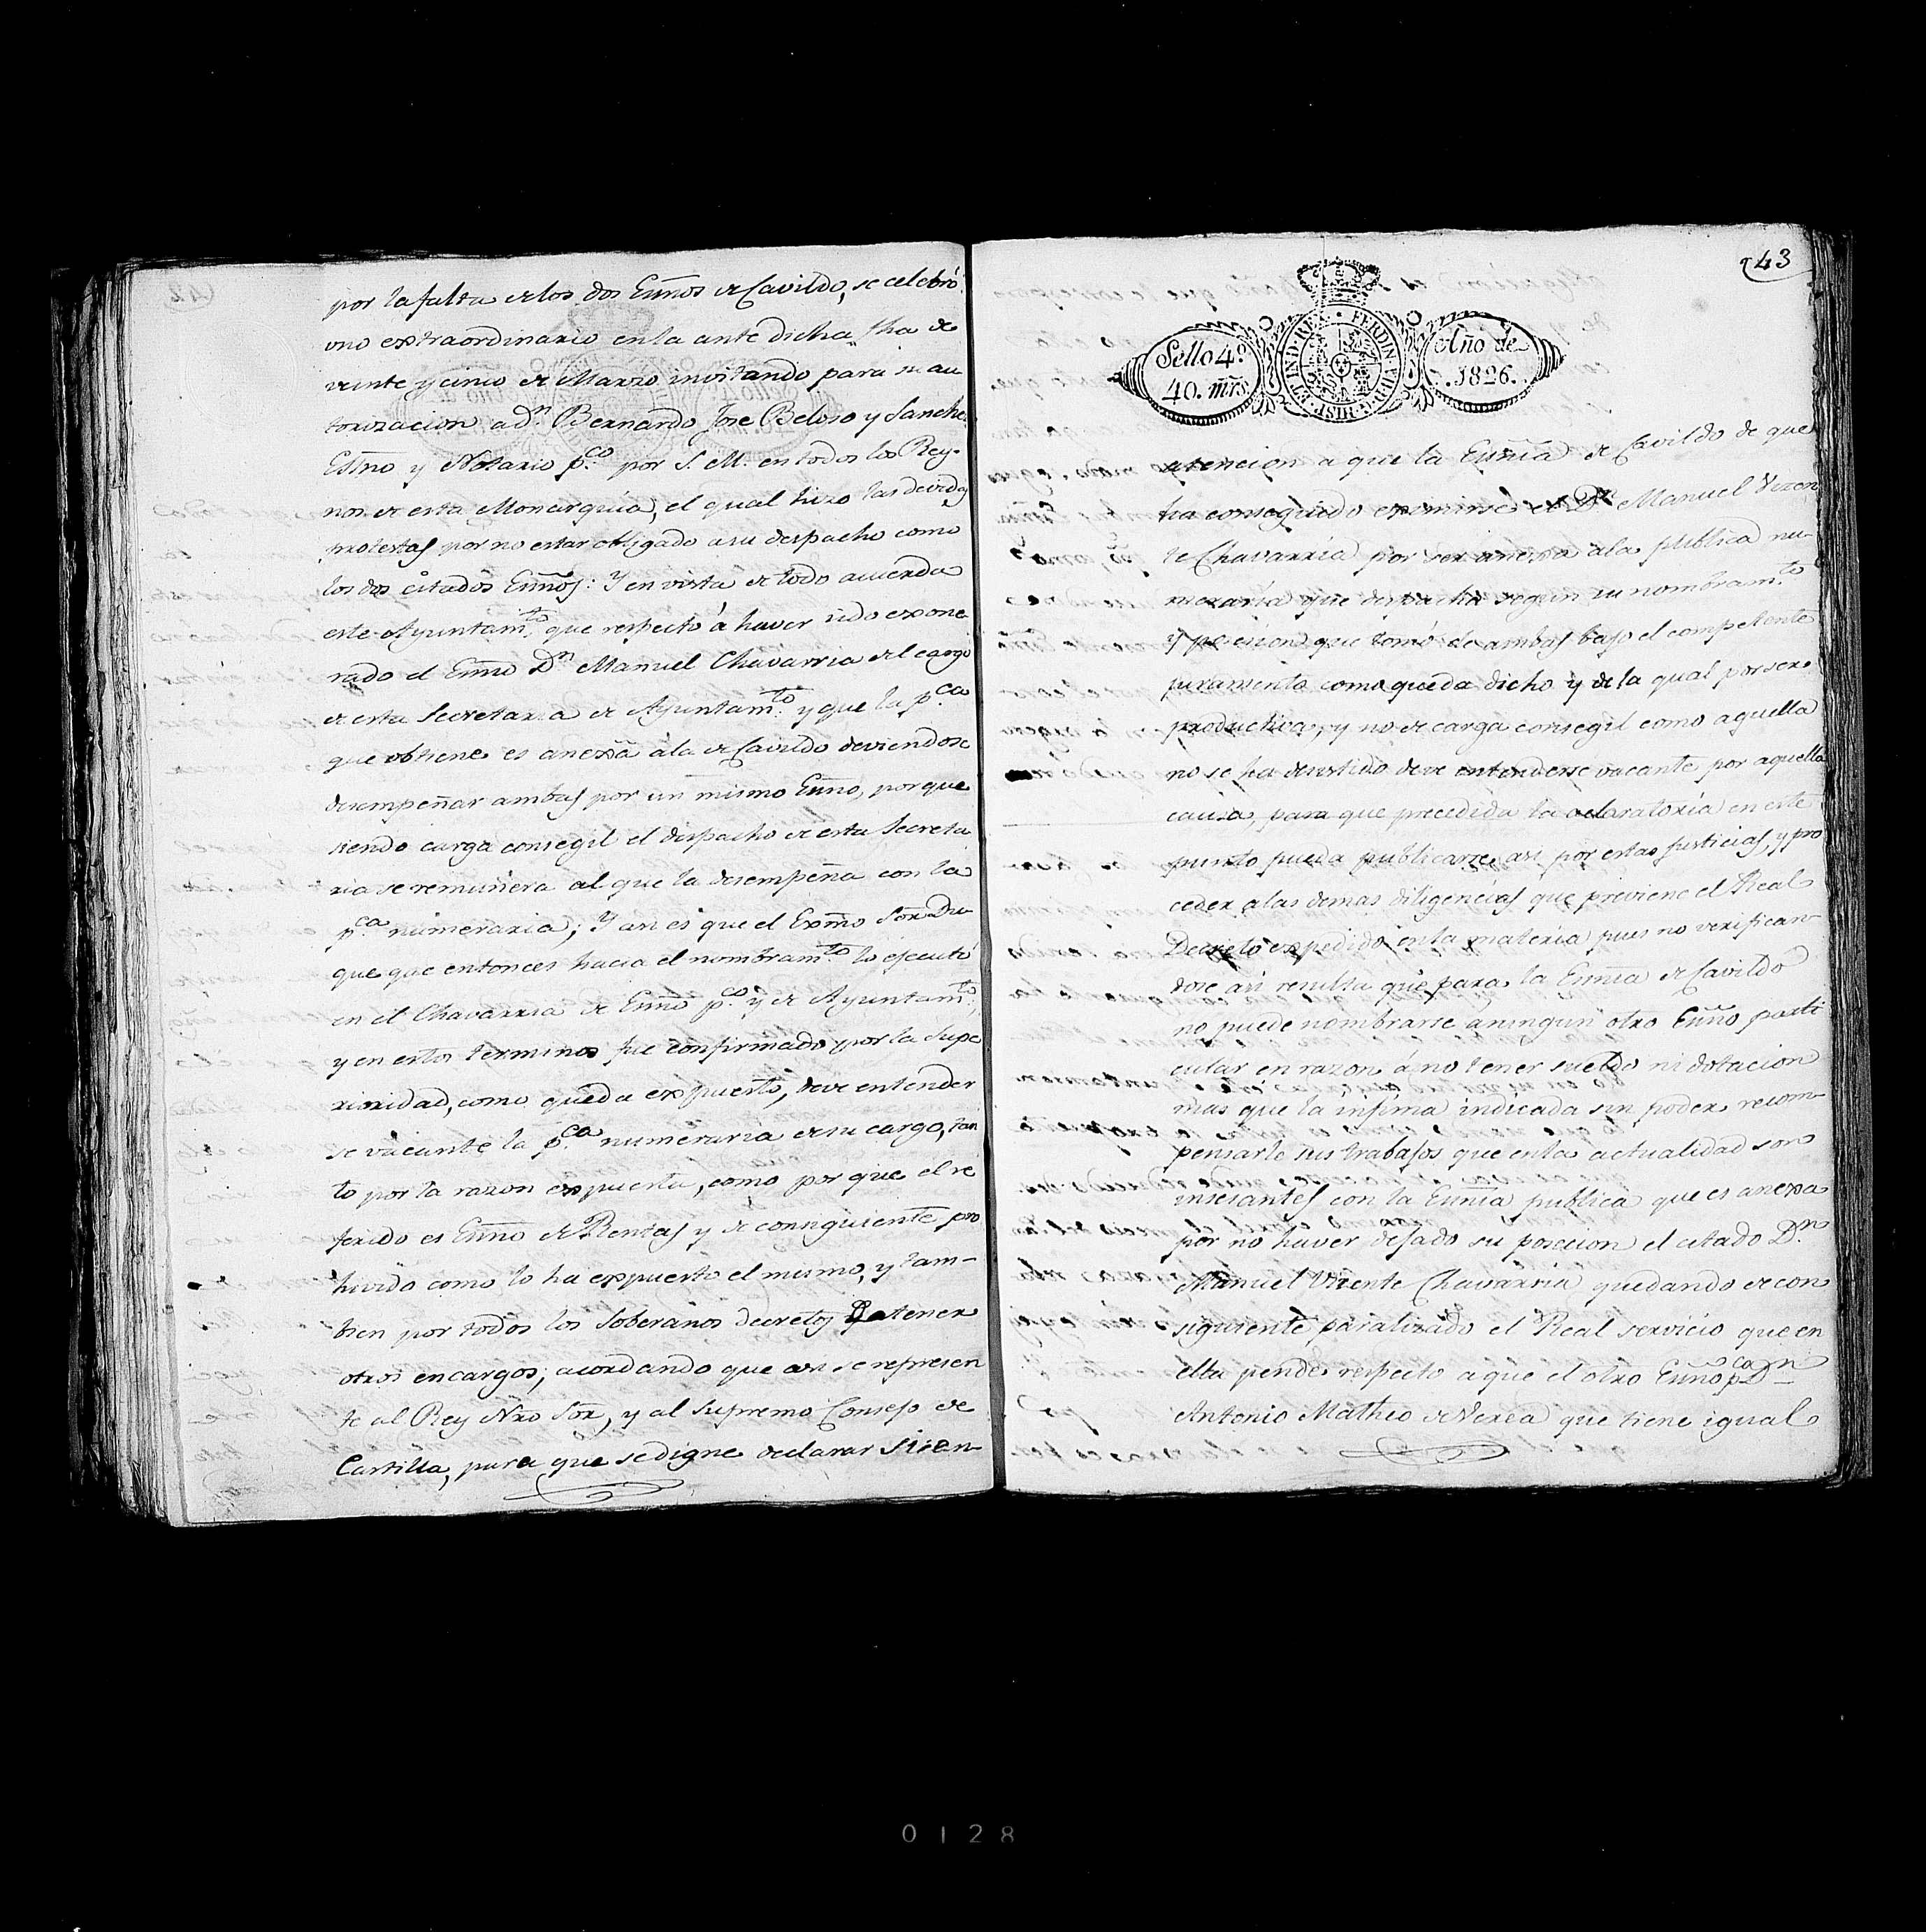 por la falta de los dos Essnos de Cavildo, se celebró
uno extraordinario en la ante dicha fha de
veinte y cinco de Marzo invitando para su au
torizacion a Dn. Bernardo Jose Beloso y Sanche
Essno y Notario p.co por S. M. en todos los Rey-
nos de esta Monarquía, el qual hizo las devidas
protestas por no estar obligado a su despacho como
los dos citados Essnos: Y en vista de todo acuerda
este Ayuntam.to que respecto á haver sido exone
rado el Essno Dn Manuel Chavarria del cargo
de esta Secretaria de Ayuntam.to y que la p.ca
que obtiene es anexa ala de Cavildo deviendose
desempeñar ambas por un mismo Essno, porque
siendo carga consegil el despacho de esta Secreta
ria se remunera al que la desempeña con la
p.ca numeraria; Y asi es que el Exmo Sor Du
que que entonces hacia el nombram.to lo ejecutó
en el Chavarria de Essno p.co y de Ayuntam.to;
y en estos terminos fue confirmado por la Supe
rioridad, como queda expuesto, deve entender
se vacante la p.ca numeraria de su cargo, tan
to por la razon expuesta, como por que el re
ferido es Essno de Rentas y de consiguiente pro
hivido como lo ha expuesto el mismo, y tam-
bien por todos los Soberanos decretos obtener
otros encargos; acordando que asi se represen
te al Rey Nro Sor, y al Supremo Consejo de
Castilla, para que se digne declarar si en
43
Sello 4.º
40. mrs.
FERDIN. VII. D. G. HISP. ET IND. REX
Año de
1826.
atencion a que la Essnía de Cavildo de que
ha conseguido eximirse el Dn Manuel Vizen
te Chavarria por ser anexa ala publica nu-
meraria que despacha según su nombram.to
y posesion que tomó de ambas bajo el competente
juramento como queda dicho y de la qual por ser
productiva, y no de carga consegil como aquella
no se ha desistido deve entenderse vacante por aquella
causa, para que precedida la aclaratoria en este
punto pueda publicarse asi por estas Justicias, y pro
ceder a las demas diligencias que previene el Real
Decreto expedido en la materia pues no verifican
dose asi resulta que para la Essnia de Cavildo
no puede nombrarse aningun otro Essno parti
cular en razon á no tener sueldo ni dotacion
mas que la infima indicada sin poder recom-
pensarle sus trabajos que en la actualidad son
insesantes con la Essnia publica que es anexa
por no haver dejado su posecion el citado Dn.
Manuel Vicente Chavarria quedando de con
siguiente paralizado el Real servicio que en
ella pende respecto a que el otro Essno p.co Dn
Antonio Matheo de Verea que tiene igual
0128